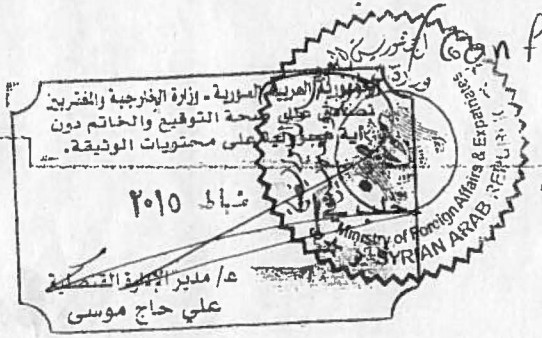 الجمهورية العربية السورية - وزارة الخارجية والمغتربين
تصادق على صحة التوقيع والخاتم دون
أية مسؤولية على محتويات الوثيقة.
شباط ٢٠١٥
ع/ مدير الإدارة القنصلية
علي حاج موسى
Ministry of Foreign Affairs & Expatriates
SYRIAN ARAB REPUBLIC